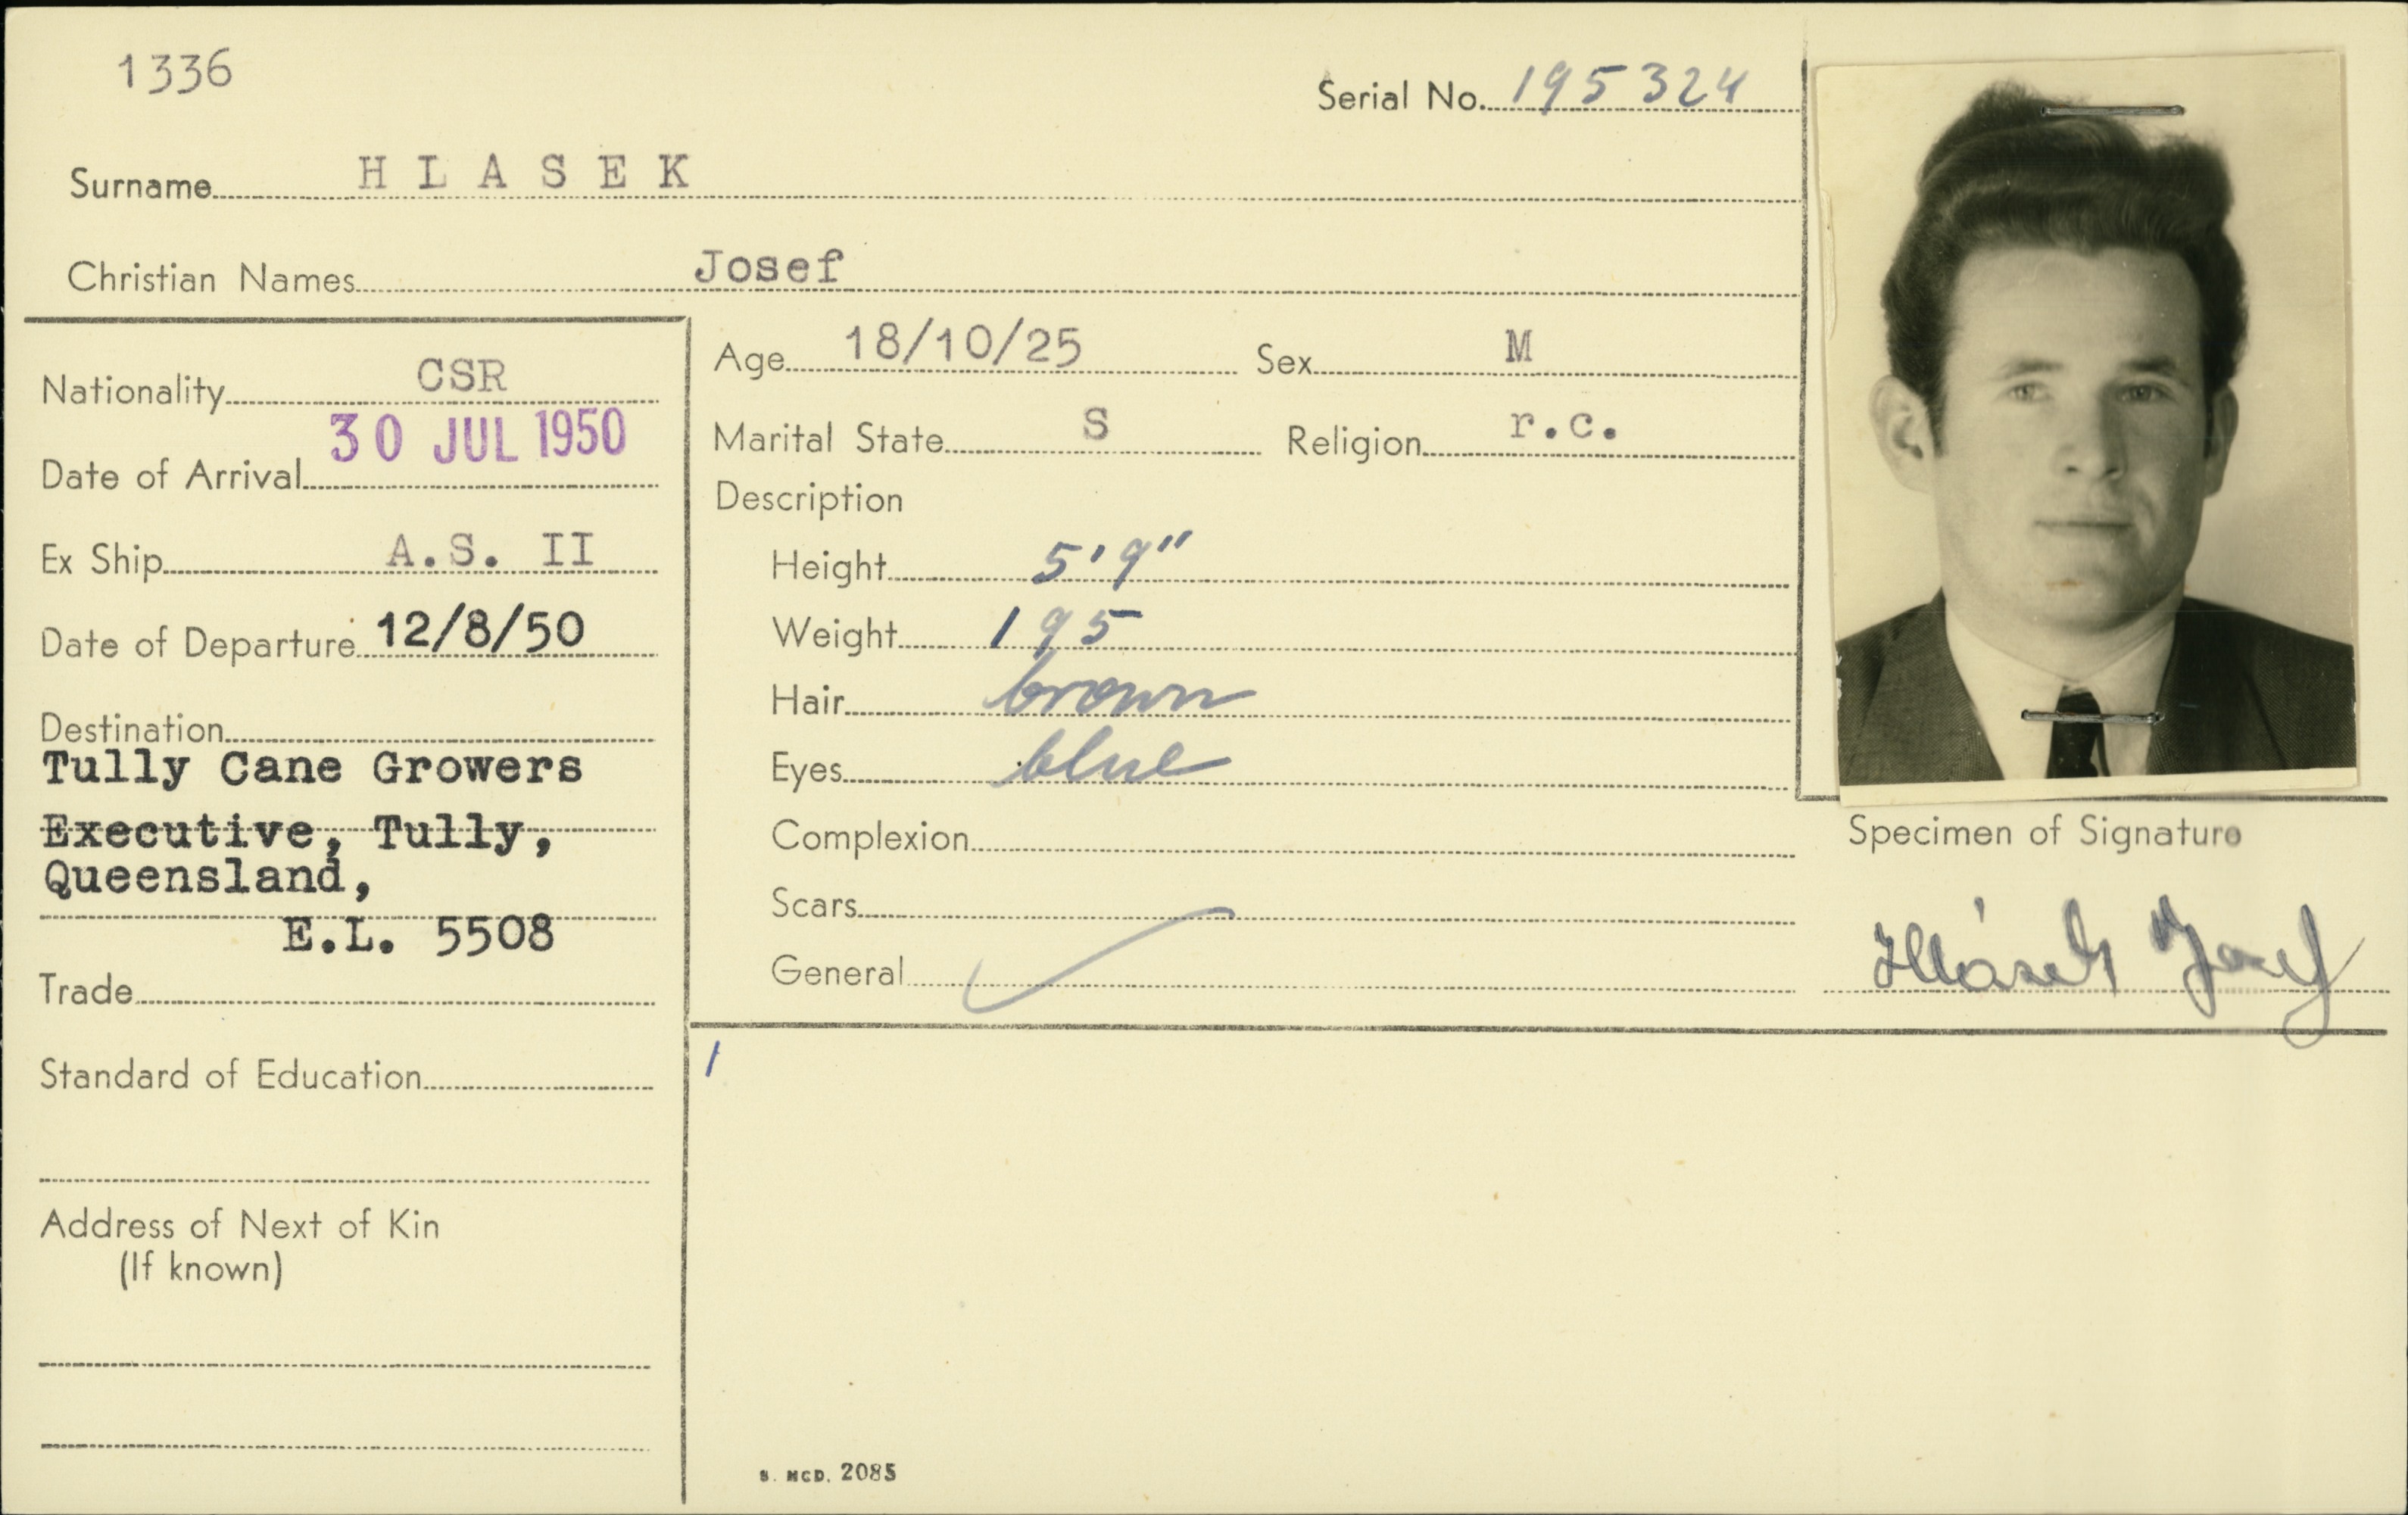 1336
Serial No. 195324
Surname HLASEK
Christian Names Josef
Nationality CSR
Date of Arrival 30 JUL 1950
Ex Ship A.S. II
Date of Departure 12/8/50
Destination
Tully Cane Growers
Executive, Tully,
Queensland,
E.L. 5508
Trade
Standard of Education
Address of Next of Kin
(If known)
Age 18/10/25 Sex M
Marital State S Religion r.c.
Description
Height 5'9"
Weight 195
Hair brown
Eyes blue
Complexion
Scars
General
Specimen of Signature
Hlásek Josef
1
S. MCD. 2085